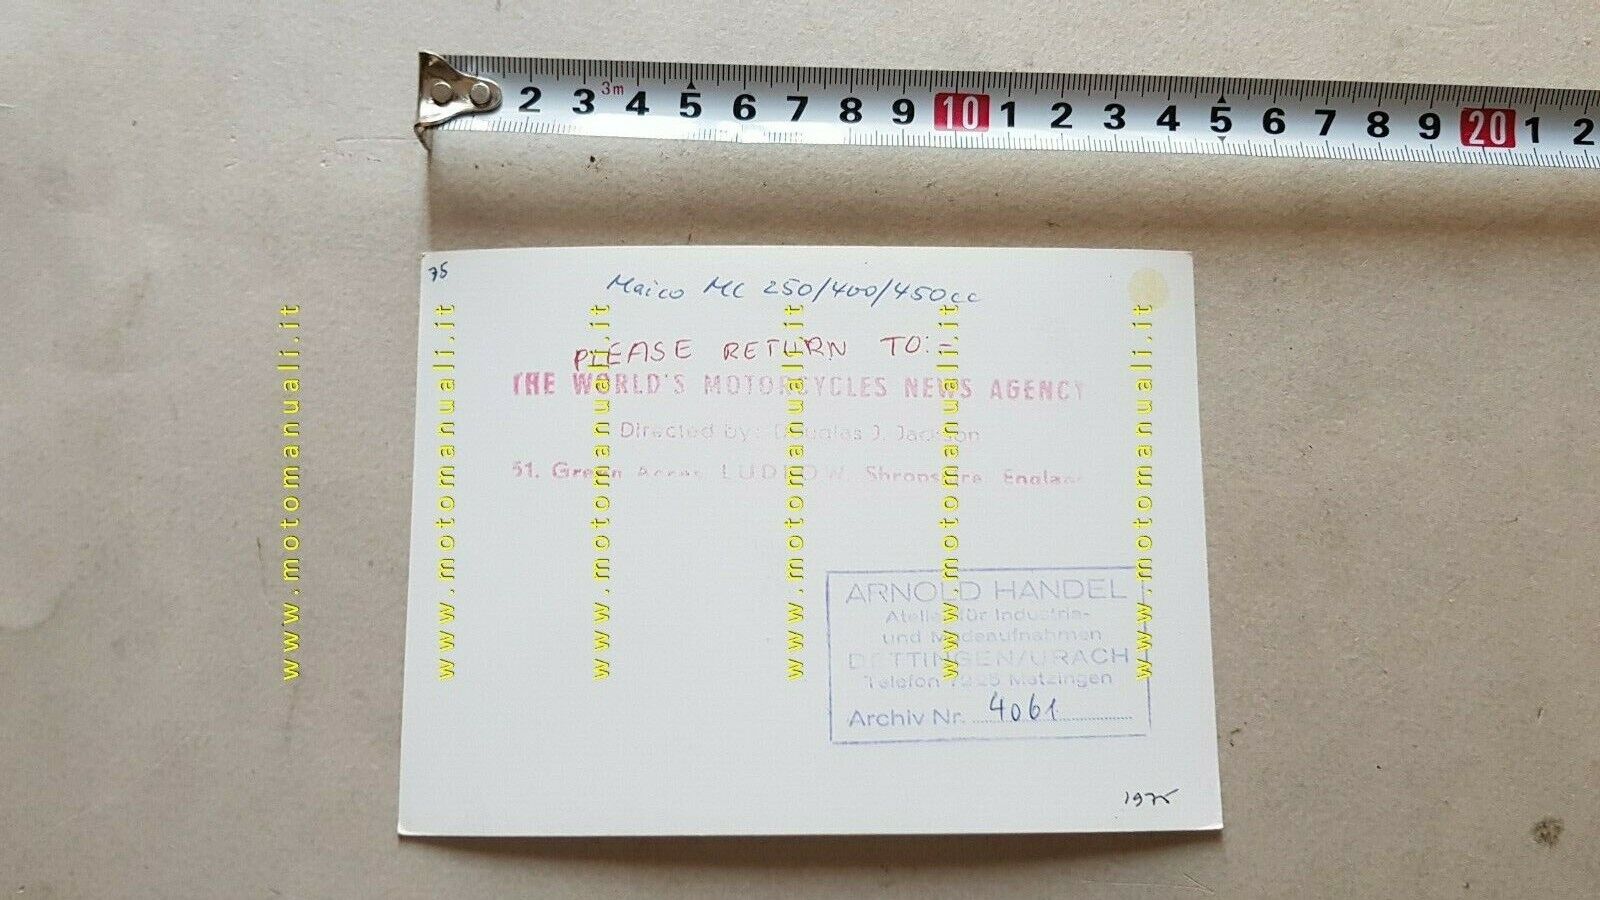 2 3 3m 4 5 6 7 8 9 10 1 2 3 4 5 6 7 8 9 20 1 2
75
Maico MC 250/400/450cc
PLEASE RETURN TO:-
THE WORLD'S MOTORCYCLES NEWS AGENCY
Directed by: Douglas J. Jackson
51. Green Acres LUDLOW, Shropshire England
ARNOLD HANDEL
Atelier für Industrie-
und Modeaufnahmen
DETTINGEN/URACH
Telefon Metzingen
Archiv Nr. 4061
1975
www.motomanuali.it
www.motomanuali.it
www.motomanuali.it
www.motomanuali.it
www.motomanuali.it
www.motomanuali.it